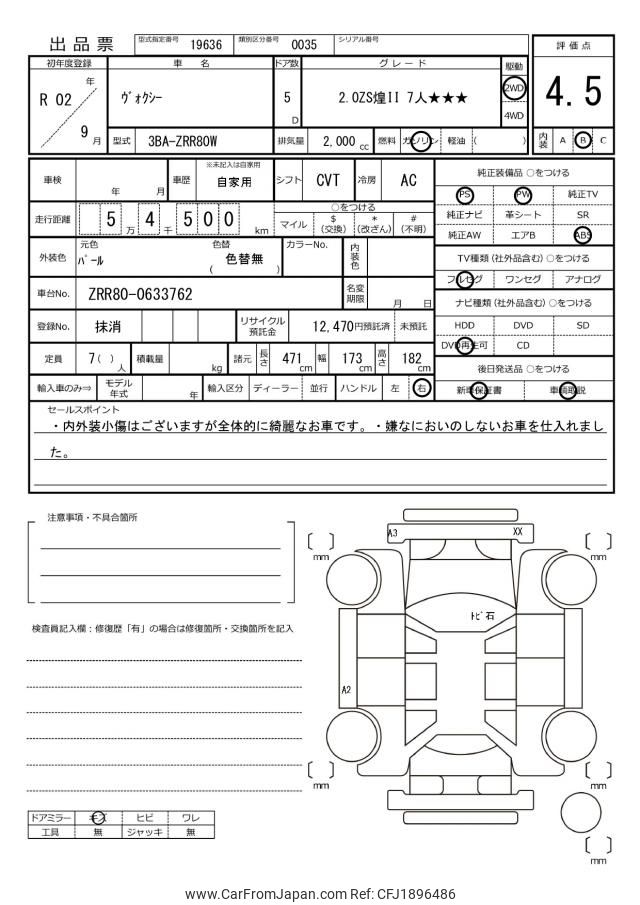 出品票
型式指定番号 19636 類別区分番号 0035 シリアル番号
初年度登録 車 名 ドア数 グレード 駆動 評価点
R 02 年 9 月 ヴォクシー 5 D 2.0ZS煌II 7人★★★ 2WD 4WD 4.5
型式 3BA-ZRR80W 排気量 2,000 cc 燃料 ガソリン 軽油 ( ) 内装 A B C
車検 年 月 車歴 ※未記入は自家用 自家用 シフト CVT 冷房 AC
純正装備品 ○をつける
PS PW 純正TV
純正ナビ 革シート SR
純正AW エアB ABS
走行距離 5 万 4 千 5 0 0 km
○をつける
マイル $ (交換) * (改ざん) # (不明)
外装色 元色 パール 色替 ( 色替無 ) カラーNo. 内装色
TV種類 (社外品含む) ○をつける
フルセグ ワンセグ アナログ
車台No. ZRR80-0633762 名変期限 月 日
ナビ種類 (社外品含む) ○をつける
HDD DVD SD
DVD再生可 CD
登録No. 抹消 リサイクル預託金 12,470円預託済 未預託
定員 7( ) 人 積載量 kg 諸元 長さ 471 cm 幅 173 cm 高さ 182 cm
後日発送品 ○をつける
新車保証書 車輌取説
輸入車のみ⇒ モデル年式 年 輸入区分 ディーラー 並行 ハンドル 左 右
セールスポイント
・内外装小傷はございますが全体的に綺麗なお車です。・嫌なにおいのしないお車を仕入れまし
た。
注意事項・不具合箇所
検査員記入欄：修復歴「有」の場合は修復箇所・交換箇所を記入
A3 XX
mm mm
トビ石
A2
mm mm
mm
ドアミラー キズ ヒビ ワレ
工具 無 ジャッキ 無
www.CarFromJapan.com Ref: CFJ1896486